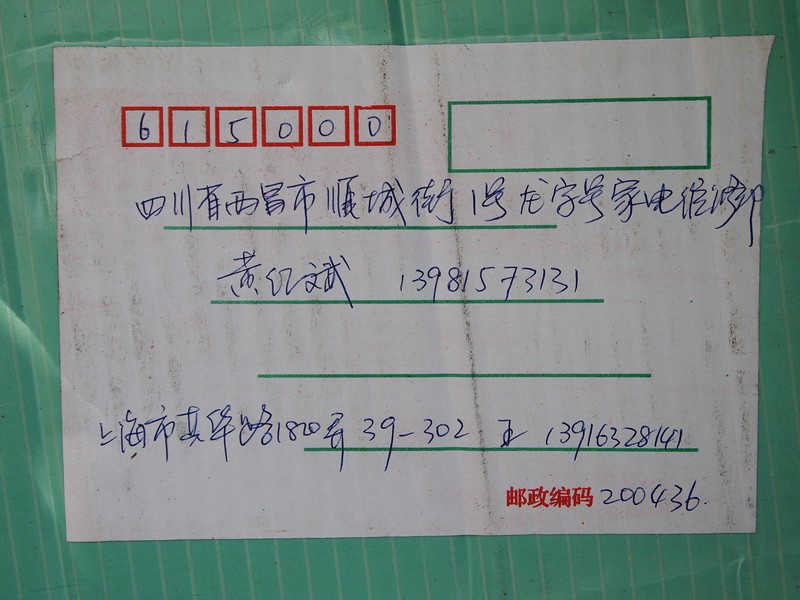 615000
四川省西昌市顺城街1号龙字号家电维修部
黄仁斌 13981573131
上海市真华路1820弄 39-302 王 13916328141
邮政编码 200436.